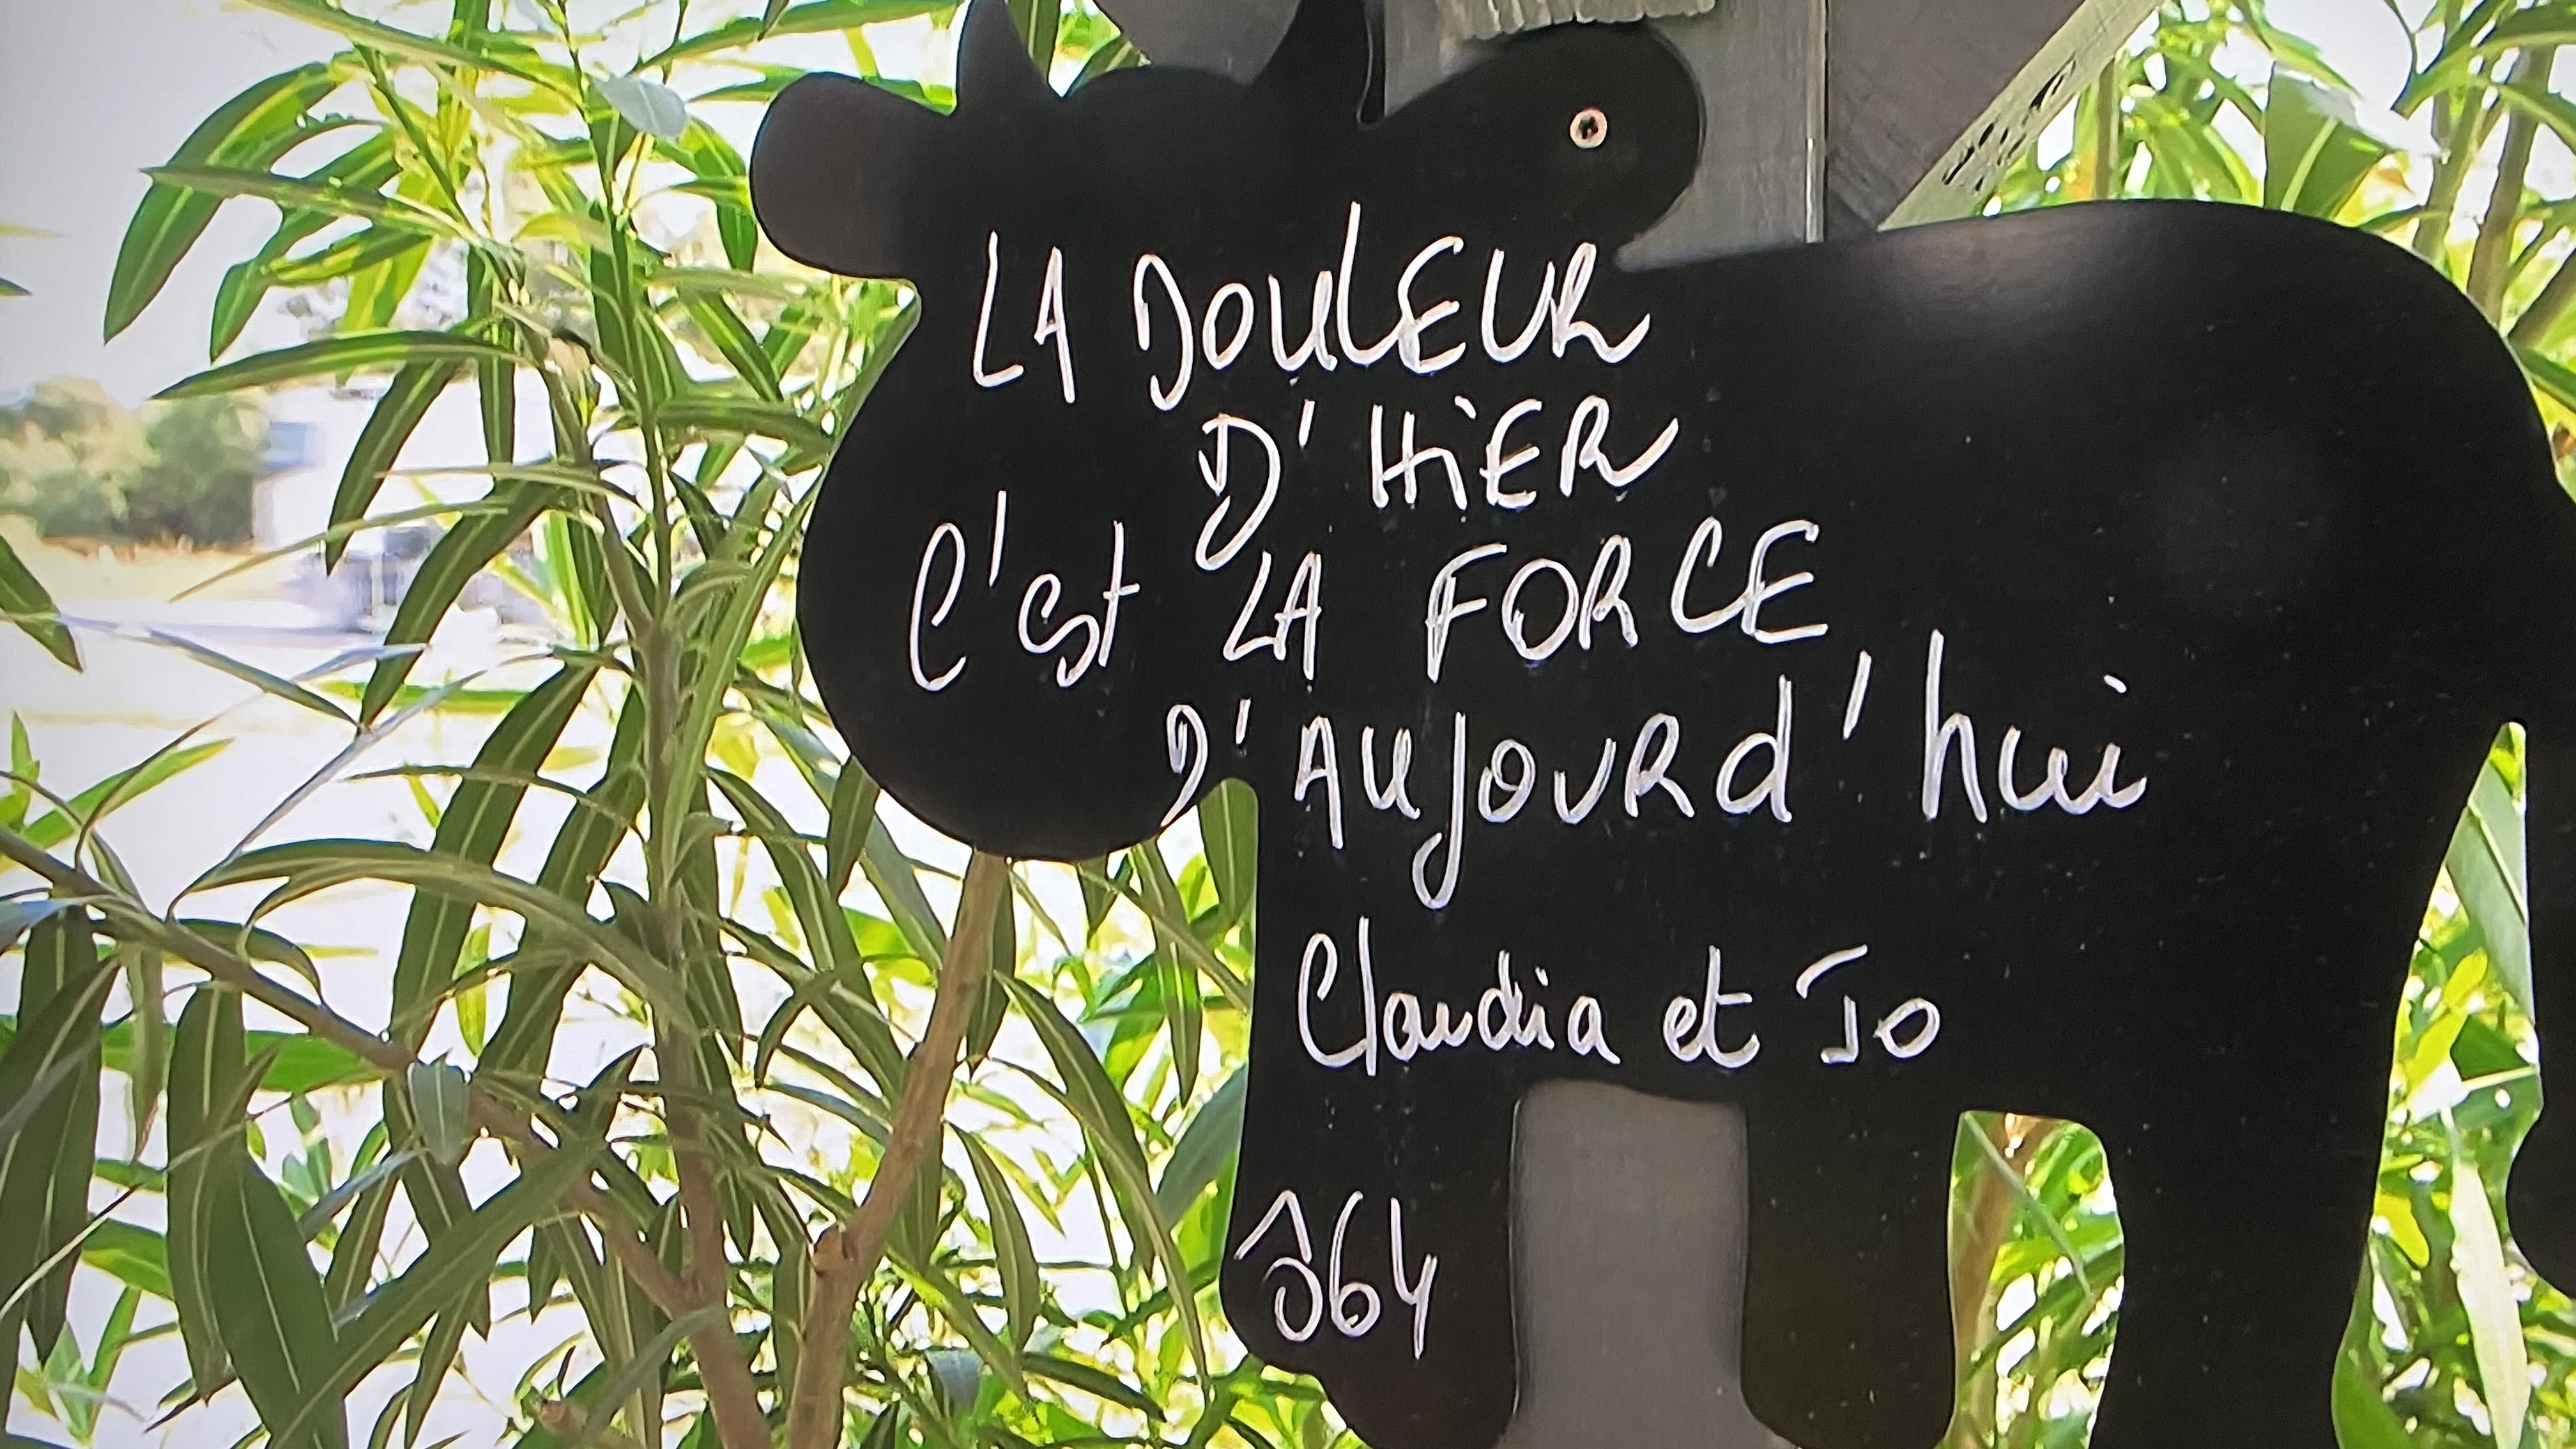 LA DOULEUR
D'HiER
C'est LA FORCE
D'AUjOURd'hui
Claudia et Jo
J64